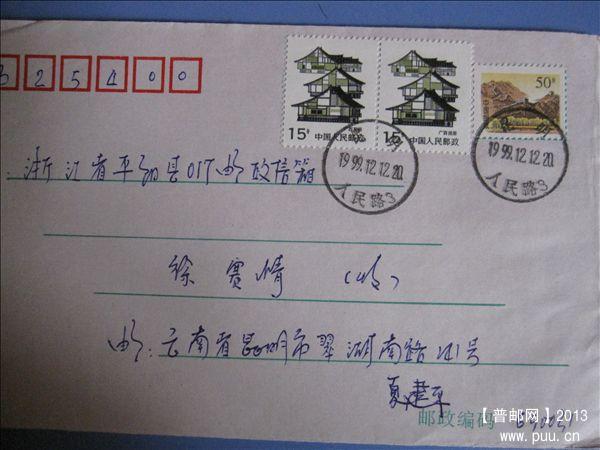 325400
15分 中国人民邮政
15分 广西民居 中国人民邮政
50分
1999.12.12.20
人民路3
1999.12.12.20
人民路3
浙江省平阳县017邮政信箱
徐赛情(收)
邮:云南省昆明市翠湖南路41号
夏建平
邮政编码 650031
【普邮网】2013
www.puu.cn